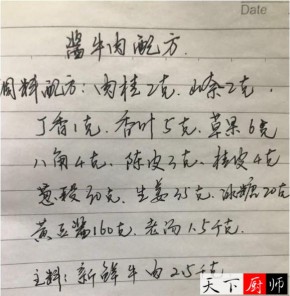 Date
酱牛肉配方.
调料配方:肉桂2克、山奈2克、
丁香1克、香叶5克、草果6克
八角4克、陈皮3克、桂皮4克
葱段50克、生姜35克、冰糖20克
黄豆酱160克、老汤1.5千克.
主料:新鲜牛肉2.5千克
天下厨师